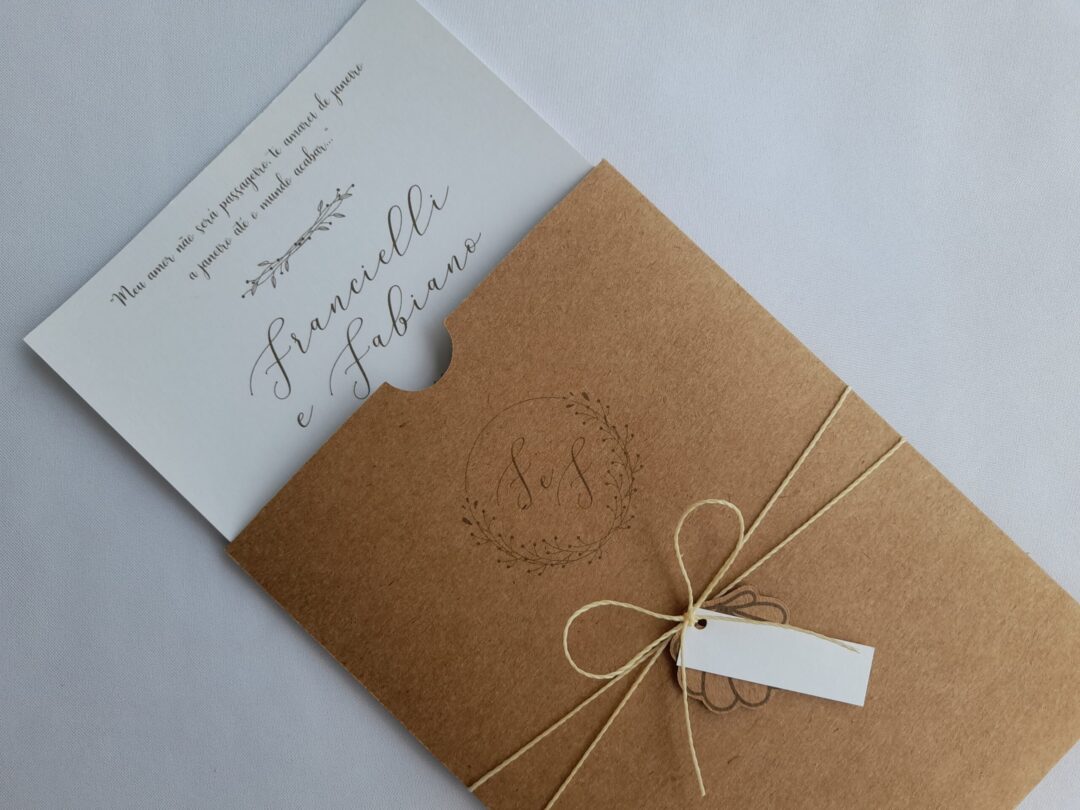 "Meu amor não será passageiro, te amarei de janeiro
a janeiro até o mundo acabar..."
Francielli
e Fabiano
F e F